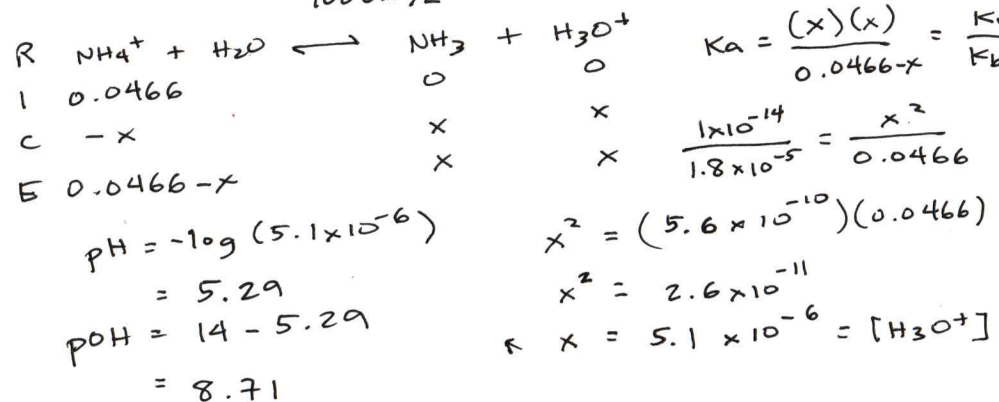 R NH4⁺ + H2O ⟷ NH3 + H3O⁺
I 0.0466 0 0
C -x x x
E 0.0466-x x x
Ka = (x)(x) / 0.0466-x =
1x10⁻¹⁴ / 1.8x10⁻⁵ = x² / 0.0466
x² = (5.6x10⁻¹⁰)(0.0466)
x² = 2.6x10⁻¹¹
x = 5.1x10⁻⁶ = [H3O⁺]
pH = -log(5.1x10⁻⁶)
= 5.29
pOH = 14 - 5.29
= 8.71